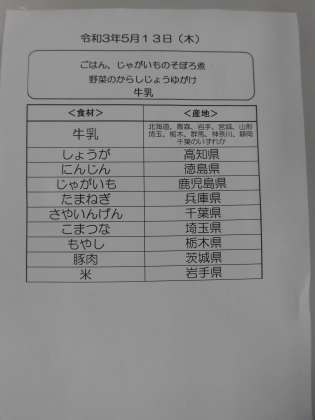 令和3年5月13日（木）
ごはん、じゃがいものそぼろ煮
野菜のからしじょうゆがけ
牛乳
＜食材＞ ＜産地＞
牛乳 北海道、青森、岩手、宮城、山形
埼玉、栃木、群馬、神奈川、静岡
千葉のいずれか
しょうが 高知県
にんじん 徳島県
じゃがいも 鹿児島県
たまねぎ 兵庫県
さやいんげん 千葉県
こまつな 埼玉県
もやし 栃木県
豚肉 茨城県
米 岩手県